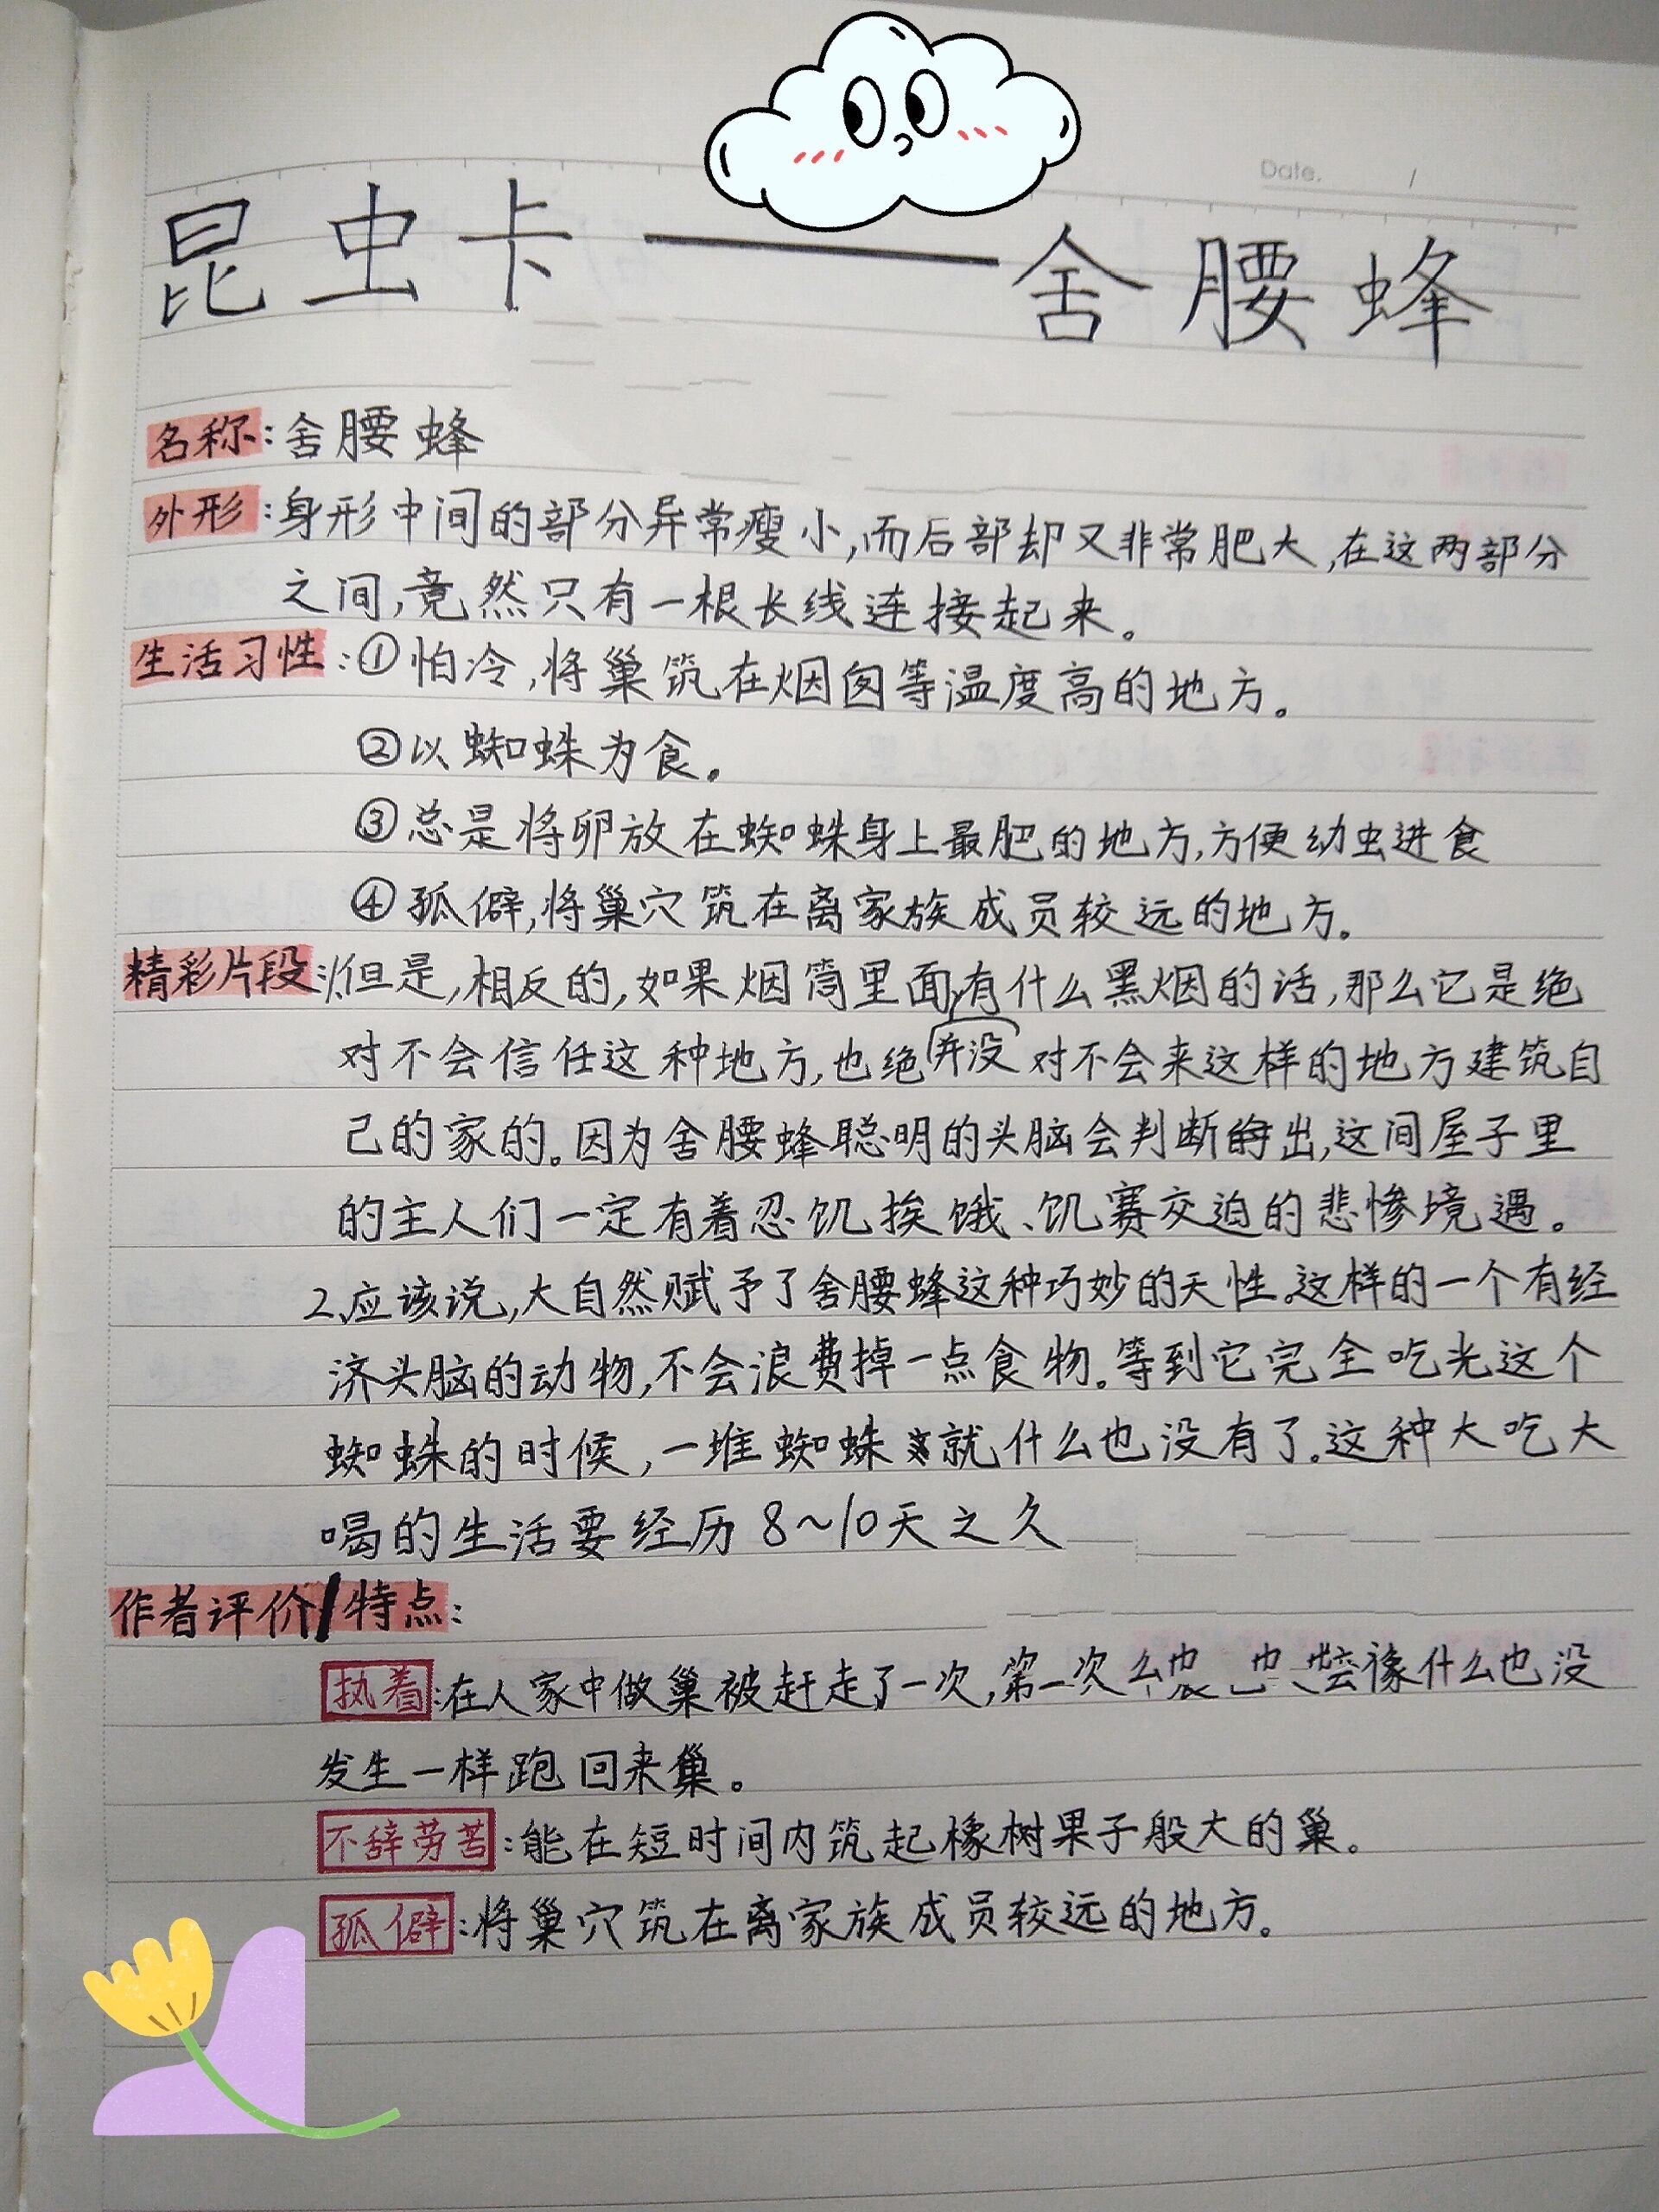 Date. /
昆虫卡——舍腰蜂
名称:舍腰蜂
外形:身形中间的部分异常瘦小,而后部却又非常肥大,在这两部分
之间,竟然只有一根长线连接起来。
生活习性:①怕冷,将巢筑在烟囱等温度高的地方。
②以蜘蛛为食。
③总是将卵放在蜘蛛身上最肥的地方,方便幼虫进食
④孤僻,将巢穴筑在离家族成员较远的地方。
精彩片段:1.但是,相反的,如果烟筒里面并没有什么黑烟的话,那么它是绝
对不会信任这种地方,也绝对不会来这样的地方建筑自
己的家的。因为舍腰蜂聪明的头脑会判断出,这间屋子里
的主人们一定有着忍饥挨饿、饥赛交迫的悲惨境遇。
2、应该说,大自然赋予了舍腰蜂这种巧妙的天性。这样的一个有经
济头脑的动物,不会浪费掉一点食物。等到它完全吃光这个
蜘蛛的时候,一堆蜘蛛就什么也没有了。这种大吃大
喝的生活要经历8~10天之久
作者评价/特点:
执着:在人家中做巢被赶走了一次,第 次 会像什么也没
发生一样跑回来巢。
不辞劳苦:能在短时间内筑起橡树果子般大的巢。
孤僻:将巢穴筑在离家族成员较远的地方。